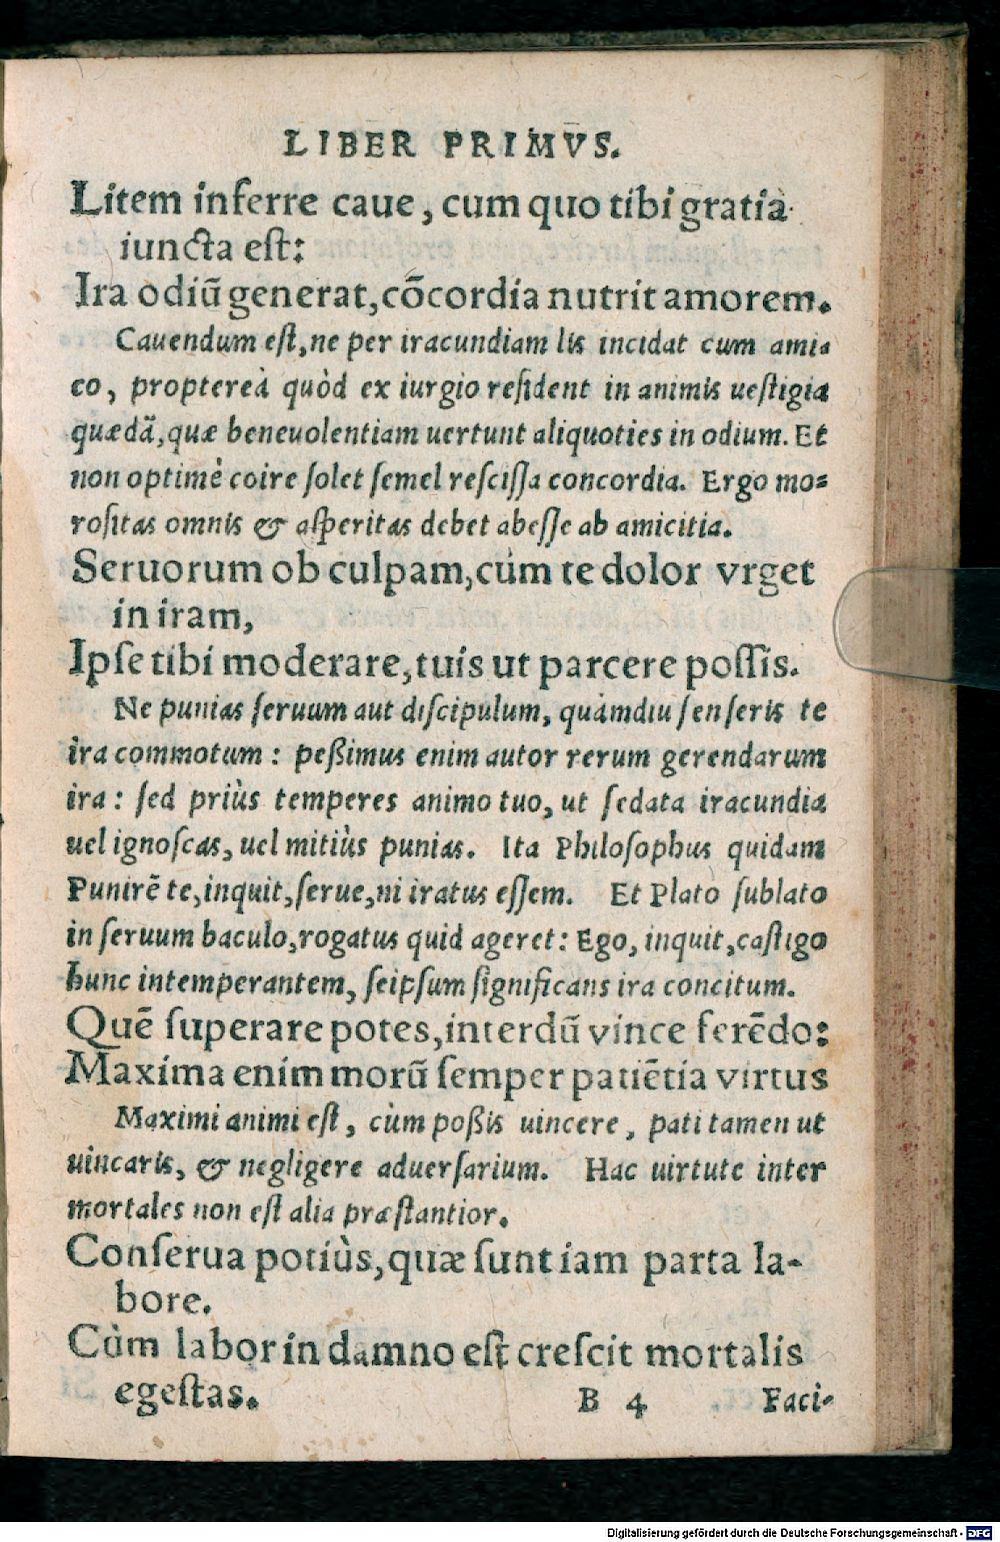 LIBER PRIMVS.
Litem inferre caue, cum quo tibi gratia
iuncta est:
Ira odiũ generat, cõcordia nutrit amorem.
Cauendum est, ne per iracundiam lis incidat cum ami-
co, propterea quòd ex iurgio resident in animis uestigia
quædã, quæ beneuolentiam uertunt aliquoties in odium. Et
non optimè coire solet semel rescissa concordia. Ergo mo-
rositas omnis & asperitas debet abesse ab amicitia.
Seruorum ob culpam, cùm te dolor vrget
in iram,
Ipse tibi moderare, tuis ut parcere possis.
Ne punias seruum aut discipulum, quàmdiu senseris te
ira commotum: peßimus enim autor rerum gerendarum
ira: sed priùs temperes animo tuo, ut sedata iracundia
uel ignoscas, uel mitiùs punias. Ita Philosophus quidam
Punirẽ te, inquit, serue, ni iratus essem. Et Plato sublato
in seruum baculo, rogatus quid ageret: Ego, inquit, castigo
hunc intemperantem, seipsum significans ira concitum.
Quẽ superare potes, interdũ vince ferẽdo:
Maxima enim morũ semper patiẽtia virtus
Maximi animi est, cùm poßis uincere, pati tamen ut
uincaris, & negligere aduersarium. Hac uirtute inter
mortales non est alia præstantior.
Conserua potiùs, quæ sunt iam parta la-
bore.
Cùm labor in damno est crescit mortalis
egestas.
B 4 Faci-
Digitalisierung gefördert durch die Deutsche Forschungsgemeinschaft - DFG